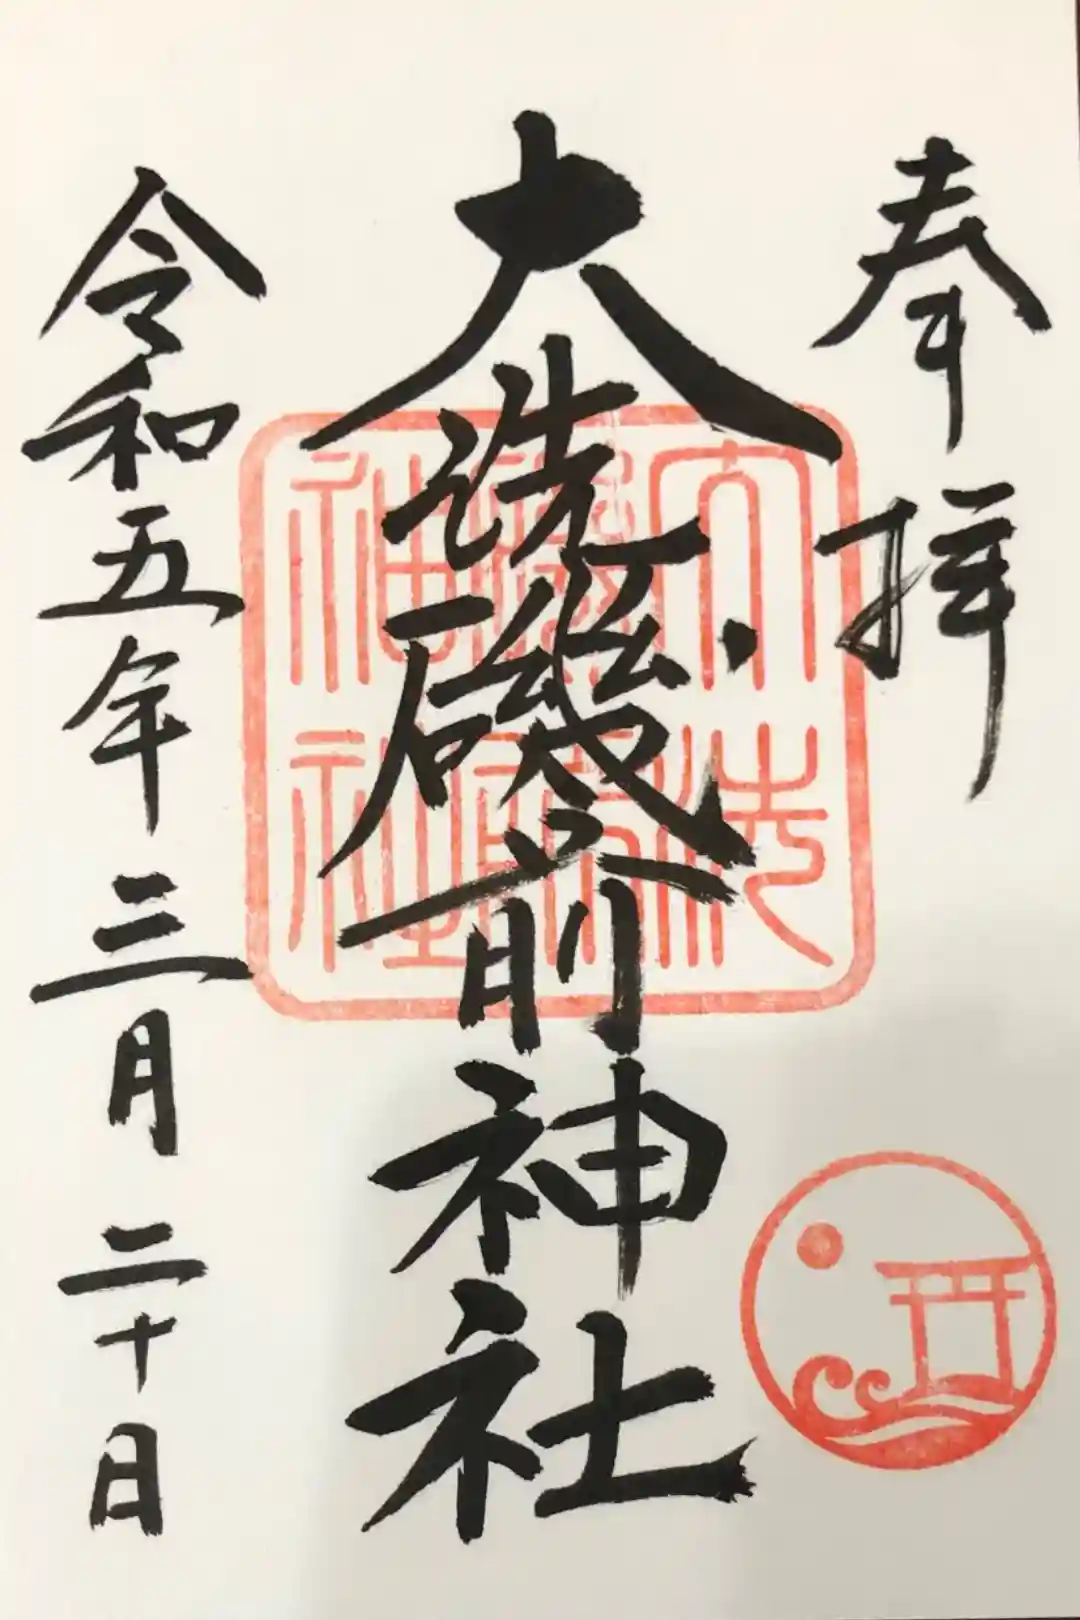 奉拝
大洗磯前神社
令和五年三月二十日
大洗
磯前
神社